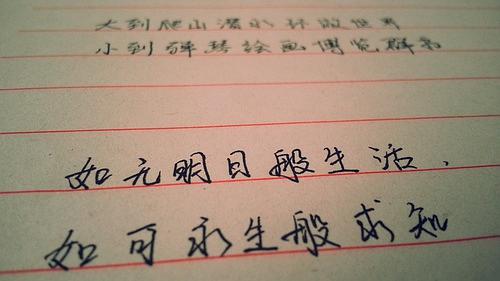 大到爬山潜水环做世界
小到弹琴绘画博览群书
如无明日般生活.
如可永生般求知